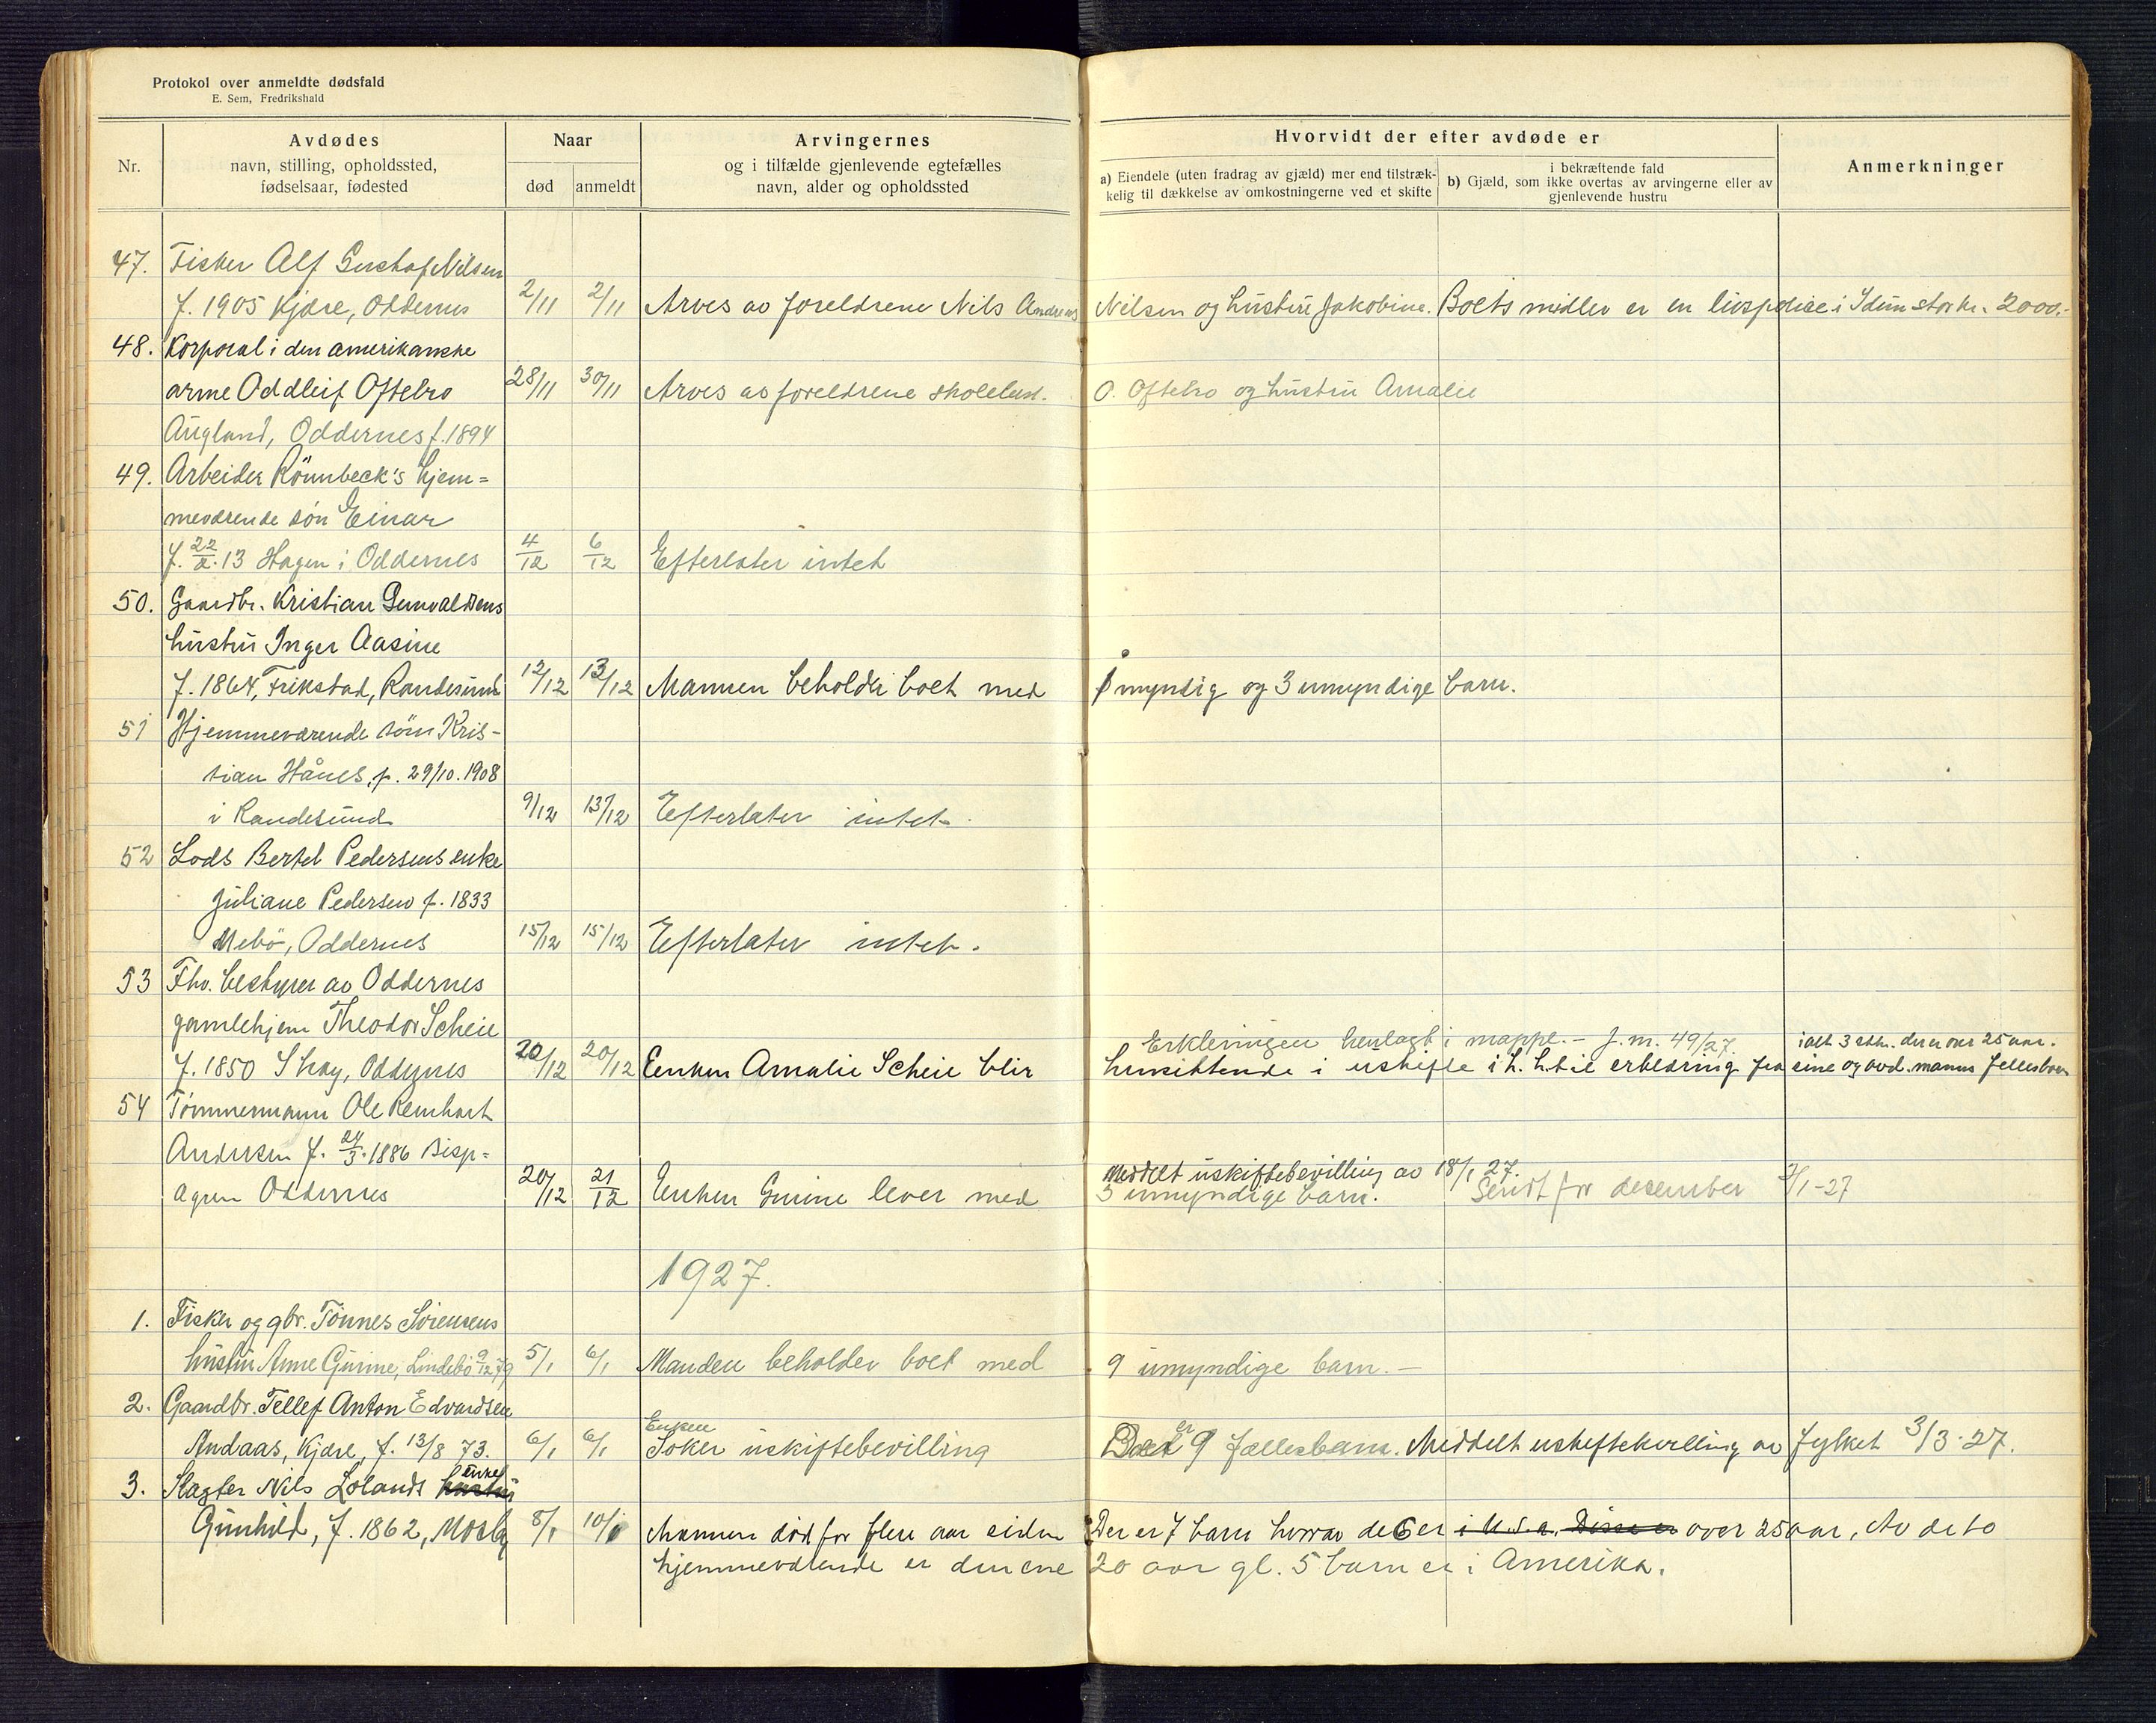 Protokol over anmeldte dødsfald
E. Sem, Fredrikshald
Nr.
Avdødes
navn, stilling, opholdssted,
fødselsaar, fødested
Naar
død anmeldt
Arvingernes
og i tilfælde gjenlevende egtefælles
navn, alder og opholdssted
Hvorvidt der efter avdøde er
a) Eiendele (uten fradrag av gjæld) mer end tilstræk-
kelig til dækkelse av omkostningerne ved et skifte
i bekræftende fald
b) Gjæld, som ikke overtas av arvingerne eller av
gjenlevende hustru
Anmerkninger
47. Fisker Alf Gustaf Nilsen
f. 1905 Kjære, Oddernes 2/11 2/11 Arves av foreldrene Nils Andreas Nilsen og hustru Jakobine. Boets midler er en livspolise i Idun stor kr. 2000,-
48. Korporal i den amerikanske
arme Oddleif Oftebro 28/11 30/11 Arves av foreldrene skolebest. O. Oftebro og hustru Amalie
Augland, Oddernes f. 1894
49. Arbeider Rönnbeck's hjem=
meværende sön Einar
f. 22/2.13 Hagen i Oddernes 4/12 6/12 Efterlater intet
50. Gaardbr. Kristian Gunvaldsens
hustru Inger Aasine
f. 1864, Frikstad, Randesund 12/12 13/12 Mannen beholder boet med 1 myndig og 3 umyndige barn.
51 Hjemmeværende sönn Kris-
tian Hånes, f. 29/10.1908
i Randesund 9/12 13/12 Efterlater intet.
52 Lods Bertel Pedersens enke
Juliane Pedersen f. 1833
Mebö, Oddernes 15/12 15/12 Efterlater intet.
53 Fhv. bestyrer av Oddernes
gamlehjem Theodor Scheie
Erkleringen henlagt i mappe. - J.m. 49/27. ialt 3 stk. der er over 25 aar.
f. 1850 Stray, Oddernes 20/12 20/12 Enken Amalie Scheie blir hensittende i uskifte i h. h. til erklæring fra sine og avd. manns fellesbarn
54 Tömmermann Ole Reinhart
Andersen f. 24/3.1886 Bisp=
Meddelt uskiftebevilling av 18/1 27.
agren Oddernes 20/12 21/12 Enken Gurine lever med 3 umyndige barn. Sendt for desember 3/1-27
1927.
1. Fisker og gbr. Tönnes Sörensens
hustru Anne Gurine, Lindebö 9/12 79 5/1 6/1 Manden beholder boet med 9 umyndige barn. -
2. Gaardbr. Tellef Anton Edvardsen
Enken
Andaas, Kjære, f. 13/8 73. 6/1 6/1 Söker uskiftebevilling Det er 9 fællesbarn. Meddelt uskiftebevilling av fylket 3/3-27.
3. Slagter Nils Lölands hustru enke
Gunhild, f. 1862, Mosby 8/1 10/1 Mannen död for flere aar siden Der er 7 barn hvorav de 6 er i U.S.a. Disse er over 25 aar, Av de to
hjemmeværende er den ene 20 aar gl. 5 barn er i Amerika.